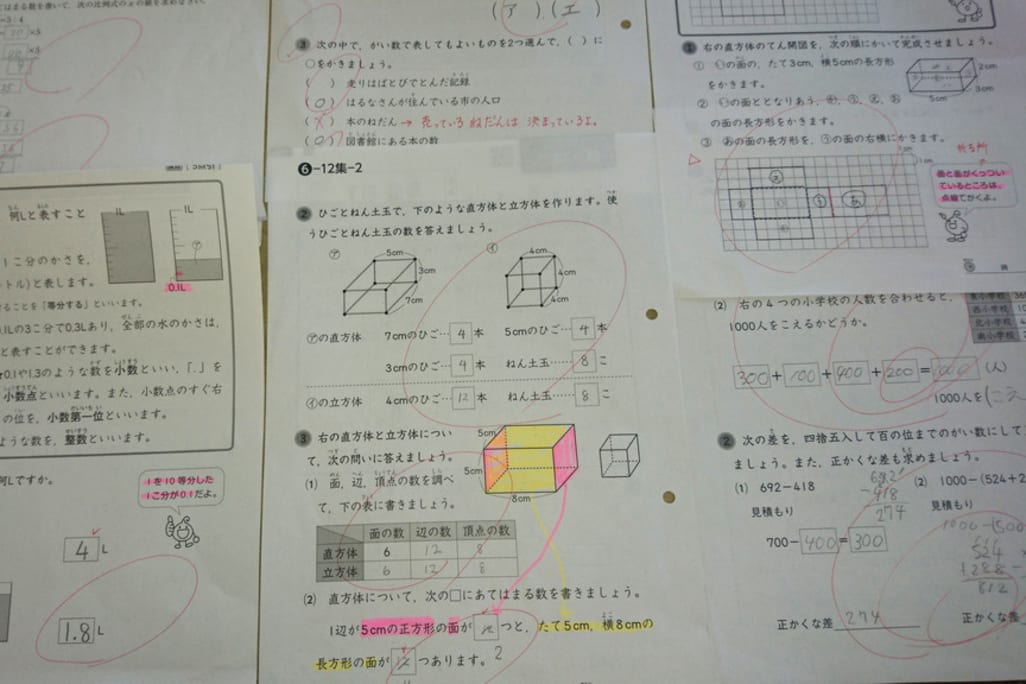 (ア)、(エ)
③ 次の中で、がい数で表してもよいものを2つ選んで、( )に
○をかきましょう。
( ) 走りはばとびでとんだ記録
(○) はるなさんが住んでいる市の人口
( ) 本のねだん→ 売っているねだんは 決まっているよ。
(○) 図書館にある本の数
⑥-12集-2
② ひごとねん土玉で、下のような直方体と立方体を作ります。使
うひごとねん土玉の数を答えましょう。
㋐ 5cm 3cm 7cm
㋑ 4cm 4cm 4cm
㋐の直方体 7cmのひご…4本 5cmのひご…4本
3cmのひご…4本 ねん土玉……8こ
㋑の立方体 4cmのひご…12本 ねん土玉……8こ
③ 右の直方体と立方体につい
て、次の問いに答えましょう。
(1) 面、辺、頂点の数を調べ
て、下の表に書きましょう。
5cm 5cm 8cm
面の数 辺の数 頂点の数
直方体 6 12 8
立方体 6 12 8
(2) 直方体について、次の□にあてはまる数を書きましょう。
1辺が5cmの正方形の面が つと、たて5cm、横8cmの
長方形の面が つあります。2
何Lと表すこと
1L 1L
㋐
0.1L
1こ分のかさを、
トル)と表します。
ることを「等分する」といいます。
0.1Lの3こ分で0.3Lあり、全部の水のかさは、
と表すことができます。
0.1や1.3のような数を小数といい、「.」を
小数点といいます。また、小数点のすぐ右
の位を、小数第一位といいます。
ような数を、整数といいます。
何Lですか。
1を10等分した
1こ分が0.1だよ。
4L
1.8L
① 右の直方体のてん開図を、次の順にかいて完成させましょう。
① ㋒の面の、たて3cm、横5cmの長方形
をかきます。
の面の長方形をかきます。
③ ㋐の面の長方形を、㋒の面の右横にかきます。
2cm 3cm 5cm
1cm
1cm
折る所
面と面がくっつい
ているところは、
点線でかくよ。
(2) 右の4つの小学校の人数を合わせると、
1000人をこえるかどうか。
東小学校
西小学校
北小学校
南小学校
300+100+400+200=1000 (人)
1000人を(こえ
② 次の差を、四捨五入して百の位までのがい数にして
ましょう。また、正かくな差も求めましょう。
(1) 692-418
692
-418
274
見積もり
700-400=300
正かくな差 274
(2) 1000-(524+2
見積もり
524
+288
812
正かくな差